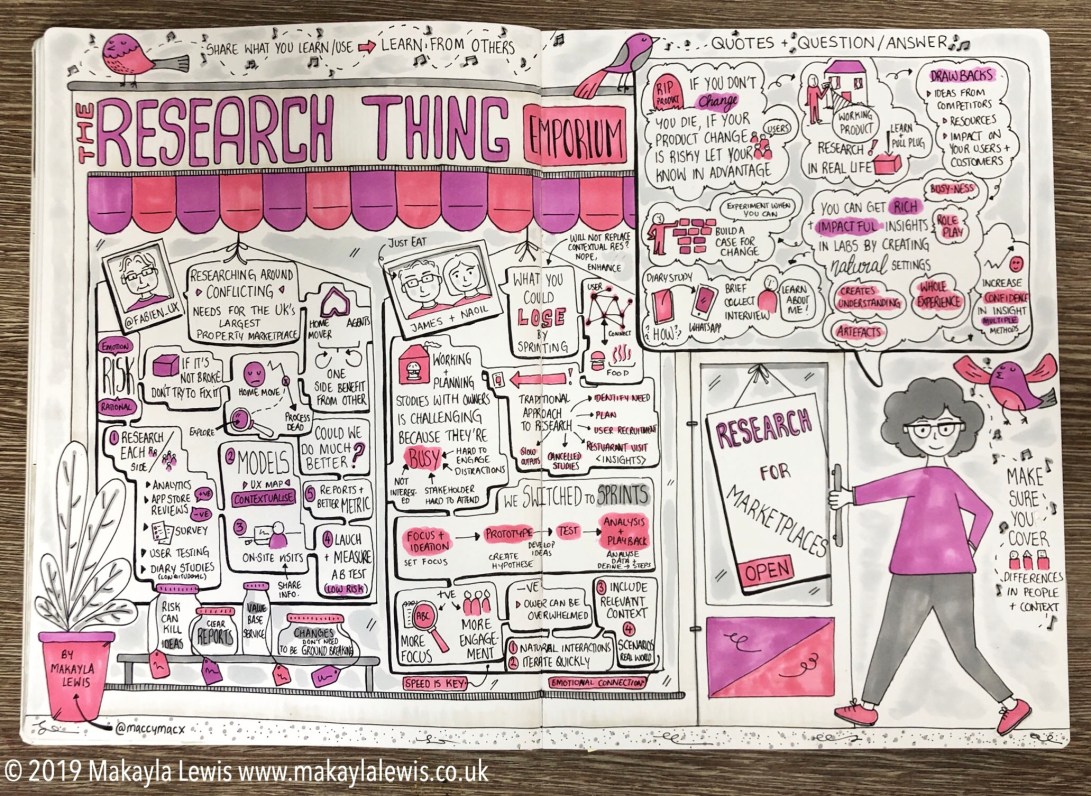 SHARE WHAT YOU LEARN/USE ➡ LEARN FROM OTHERS
THE RESEARCH THING EMPORIUM
@FABIEN_UX
RESEARCHING AROUND
CONFLICTING
NEEDS FOR THE UK'S
LARGEST
PROPERTY MARKETPLACE
HOME
MOVER
AGENTS
ONE
SIDE BENEFIT
FROM OTHER
EMOTION
RISK
RATIONAL
IF IT'S
NOT BROKE
DON'T TRY TO FIX IT
HOME MOVE!
PROCESS
DEAD
EXPLORE
COULD WE
DO MUCH
BETTER?
1 RESEARCH
EACH
SIDE/
ANALYTICS
APP STORE
REVIEWS +VE
-VE
SURVEY
USER TESTING
DIARY STUDIES
(LONGITUDONAL)
2
MODELS
UX MAP
CONTEXTUALISE
3
ON-SITE VISITS
SHARE
INFO.
5 REPORTS +
BETTER METRIC
4 LAUCH
+
MEASURE
A B TEST
(LOW RISK)
RISK
CAN
KILL
IDEAS
CLEAR
REPORTS
VALUE
BASE
SERVICE
CHANGES
DON'T NEED
TO BE GROUND BREAKING
BY
MAKAYLA
LEWIS
@maccymacx
JUST EAT
JAMES + NAOIL
WHAT YOU
COULD
LOSE
BY
SPRINTING
WILL NOT REPLACE
CONTEXTUAL RES?
NOPE,
ENHANCE
USER
CONNECT
FOOD
WORKING
+
PLANNING
STUDIES WITH OWNERS
IS CHALLENGING
BECAUSE THEY'RE
BUSY
HARD TO
ENGAGE
DISTRACTIONS
NOT
INTEREST-
ED
STAKEHOLDER
HARD TO ATTEND
!
TRADITIONAL
APPROACH
TO RESEARCH
IDENTIFY NEED
PLAN
USER RECRUITMENT
RESTUARANT VISIT
(INSIGHTS?)
SLOW
OUTPUTS
CANCELLED
STUDIES
WE SWITCHED TO SPRINTS
FOCUS +
IDEATION
SET FOCUS
PROTOTYPE
CREATE
HYPOTHESE
DEVELOP
IDEAS
TEST
ANALYSIS
+
PLAYBACK
ANALISE
DATA +
DEFINE + STEPS
+VE
ABC
MORE
FOCUS
MORE
ENGAGE-
MENT
-VE
OWER CAN BE
OVERWHELMED
1 NATURAL INTERACTIONS
2 ITERATE QUICKLY
3 INCLUDE
RELEVANT
CONTEXT
4
SCENARIOS
REAL WORLD
SPEED IS KEY
EMOTIONAL CONNECTION
QUOTES + QUESTION/ANSWER
RIP
PRODUCT
IF YOU DON'T
Change
YOU DIE, IF YOUR
PRODUCT CHANGE
IS RISKY LET YOUR
KNOW IN ADVANTAGE
USERS
WORKING
PRODUCT
RESEARCH!
IN REAL LIFE
LEARN
+
PULL PLUG
DRAWBACKS
IDEAS FROM
COMPETITORS
RESOURCES
IMPACT ON
YOUR USERS +
CUSTOMERS
EXPERIMENT WHEN
YOU CAN
BUILD A
CASE FOR
CHANGE
YOU CAN GET RICH
+ IMPACTFUL INSIGHTS
IN LABS BY CREATING
natural SETTINGS
BUSY-NESS
ROLE
PLAY
CREATES
UNDERSTANDING
WHOLE
EXPERIENCE
ARTEFACTS
INCREASE
CONFIDENCE
IN INSIGHT
MULTIPLE
METHODS
DIARY STUDY
? HOW?
WHATSAPP
BRIEF
COLLECT
INTERVIEW
LEARN
ABOUT
ME!
RESEARCH
FOR
MARKETPLACES
OPEN
MAKE
SURE
YOU
COVER
DIFFERENCES
IN PEOPLE
+ CONTEXT
© 2019 Makayla Lewis www.makaylalewis.co.uk